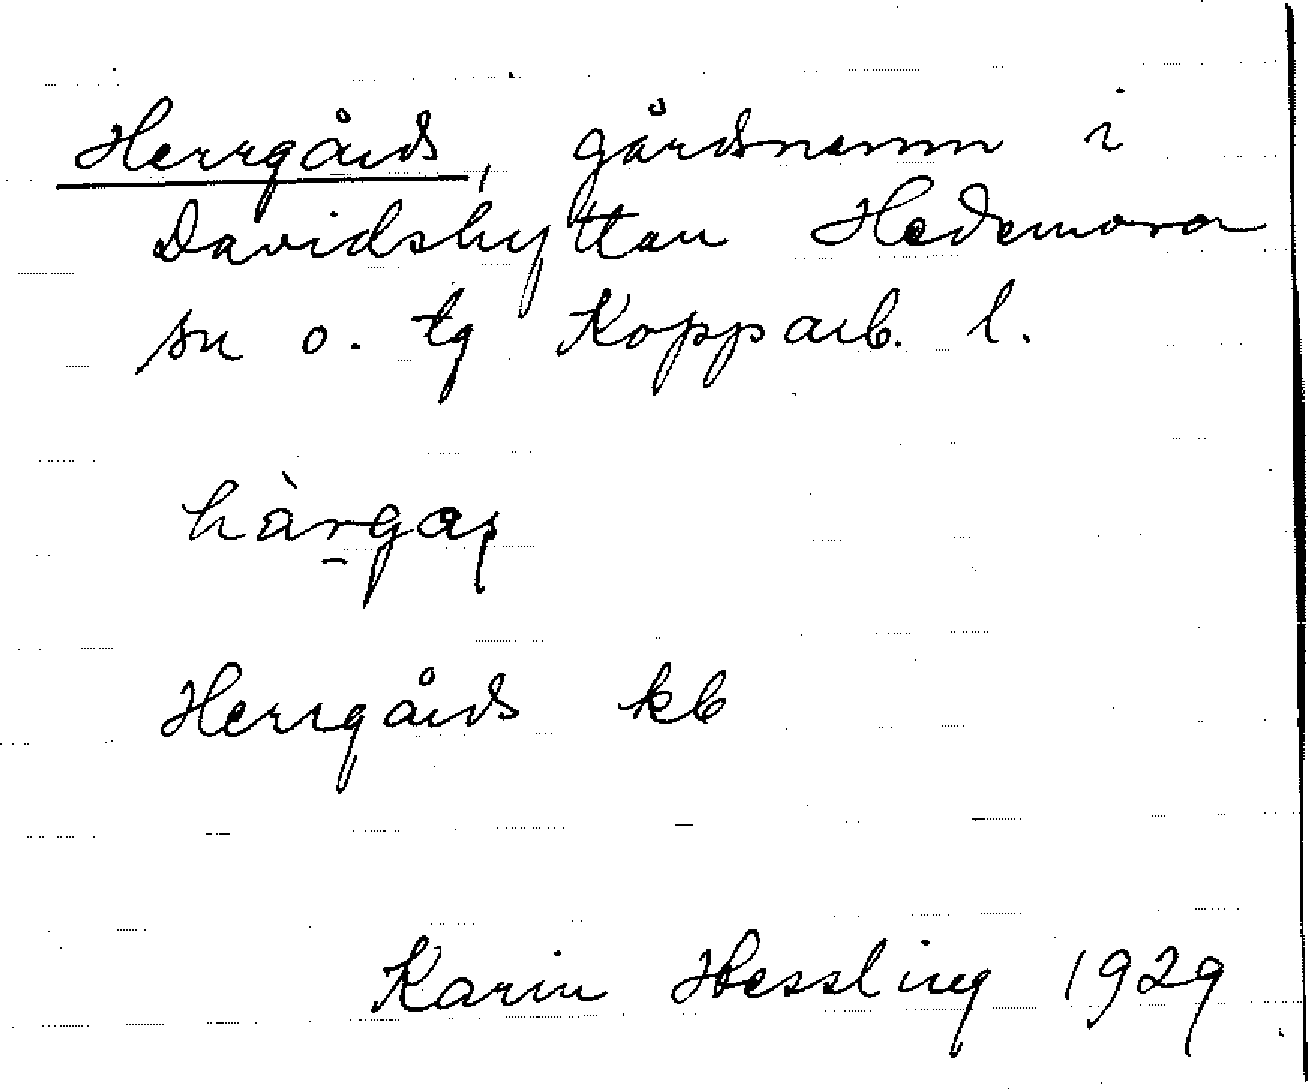 Herrgårds, gårdsnamn i
Davidshyttan Hedemora
sn o. tg Kopparb. l.
Herrgårds kb
Karin Hessling 1929